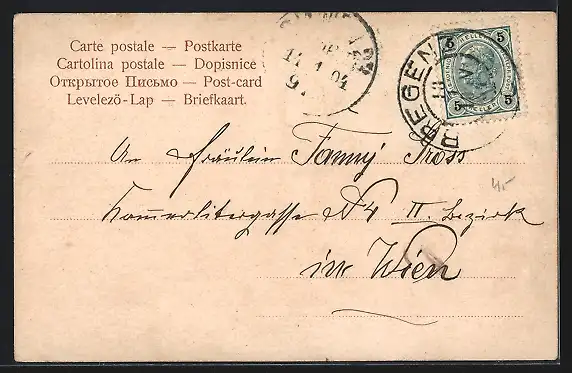 Carte postale — Postkarte
Cartolina postale — Dopisnice
Открытое Письмо — Post-card
Levelező-Lap — Briefkaart.
5 HELLER 5
5 HELLER 5
BREGENZ
11 1 04
An Fräulein Fanny Tross
N 4 II. Bezirk
in Wien
4,-